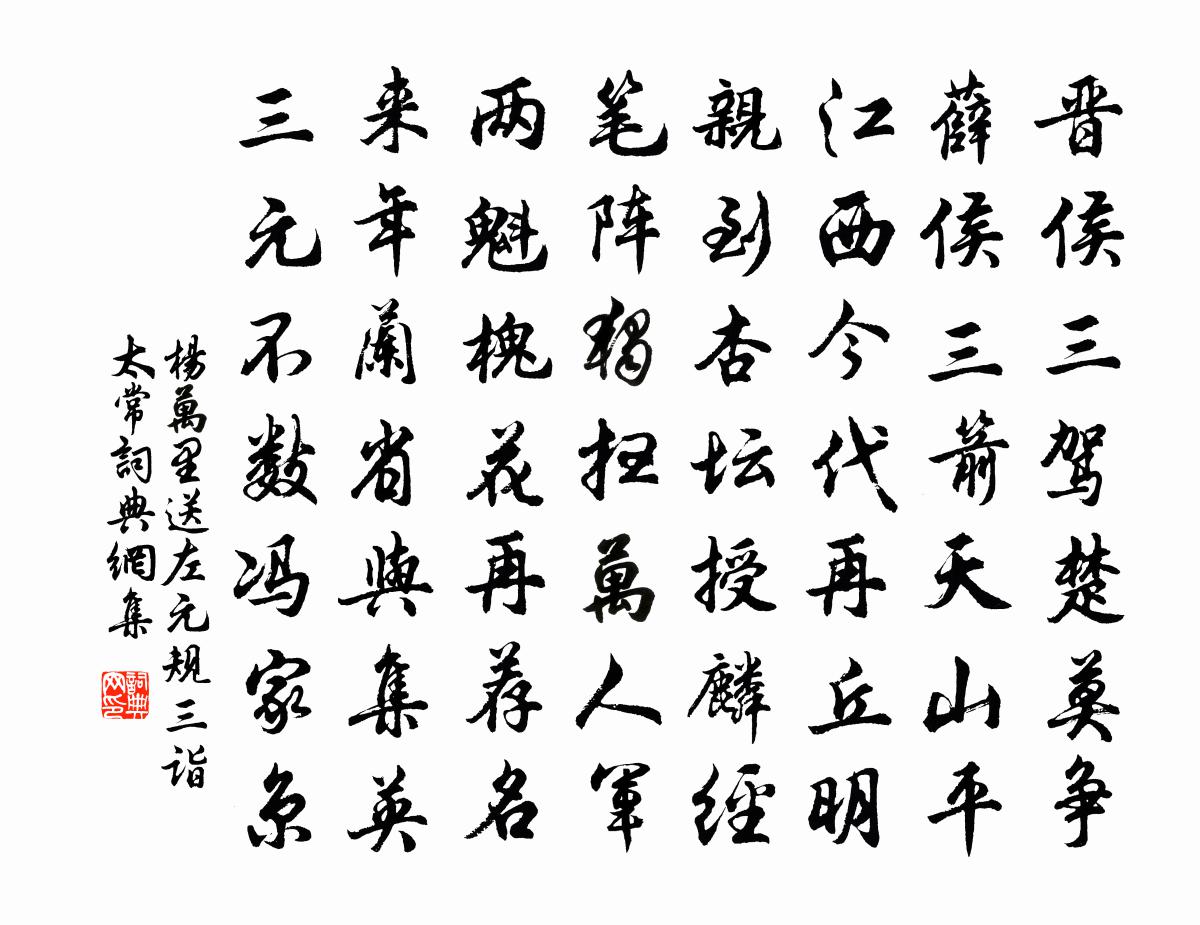 晋侯三驾楚莫争
薛侯三箭天山平
江西今代再丘明
親到杏坛授麟經
笔阵獨扫萬人軍
两魁槐花再荐名
来年蘭省與集英
三元不数冯家京
楊萬里送左元規三詣
太常詞典網集
詞典网印